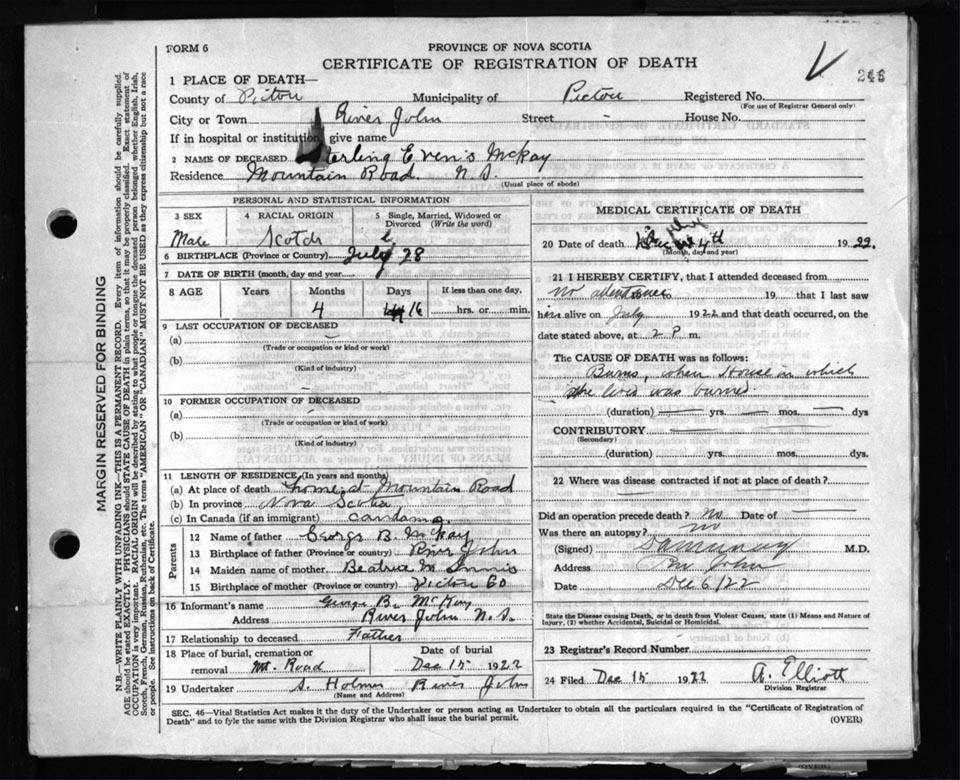 FORM 6
PROVINCE OF NOVA SCOTIA
CERTIFICATE OF REGISTRATION OF DEATH
246
1 PLACE OF DEATH—
County of Pictou Municipality of Pictou Registered No.
(For use of Registrar General only)
City or Town River John Street - House No.
If in hospital or institution give name
2 NAME OF DECEASED Sterling Evenis McKay
Residence Mountain Road. N.S.
(Usual place of abode)
PERSONAL AND STATISTICAL INFORMATION
3 SEX 4 RACIAL ORIGIN 5 Single, Married, Widowed or Divorced (Write the word)
Male Scotch
6 BIRTHPLACE (Province or Country) July 28
7 DATE OF BIRTH (month, day and year)
8 AGE Years Months Days If less than one day,
4 16 hrs. or min.
9 LAST OCCUPATION OF DECEASED
(a)
(Trade or occupation or kind or work)
(b)
(Kind of industry)
10 FORMER OCCUPATION OF DECEASED
(a)
(Trade or occupation or kind or work)
(b)
(Kind of industry)
11 LENGTH OF RESIDENCE (In years and months)
(a) At place of death Home at Mountain Road
(b) In province Nova Scotia
(c) In Canada (if an immigrant)
Parents
12 Name of father George B. McKay
13 Birthplace of father (Province or country) River John
14 Maiden name of mother Beatrice M Innis
15 Birthplace of mother (Province or country) Pictou Co
16 Informant's name George B. McKay
Address River John N.S.
17 Relationship to deceased Father
18 Place of burial, cremation or removal Mt. Road
Date of burial Dec 15 1922
19 Undertaker S. Holmes River John
(Name and Address)
MEDICAL CERTIFICATE OF DEATH
20 Date of death 4th 1922.
(Month, day and year)
21 I HEREBY CERTIFY, that I attended deceased from
No attendance to 19 that I last saw
him alive on July 1922 and that death occurred, on
date stated above, at 2 P. m.
The CAUSE OF DEATH was as follows:
Burns, when House in which
he lived was burned
(duration) yrs. mos. dys
CONTRIBUTORY
(Secondary)
(duration) yrs. mos. dys.
22 Where was disease contracted if not at place of death?
Did an operation precede death? No Date of
Was there an autopsy? no
(Signed) M.D.
Address Riv John
Date Dec 6/22
State the Disease causing Death, or in death from Violent Causes, state (1) Means and Nature of
Injury, (2) whether Accidental, Suicidal or Homicidal.
23 Registrar's Record Number
24 Filed Dec 15 1922 A. Elliott
Division Registrar
SEC. 46—Vital Statistics Act makes it the duty of the Undertaker or person acting as Undertaker to obtain all the particulars required in the "Certificate of Registration of
Death" and to fyle the same with the Division Registrar who shall issue the burial permit.
(OVER)
MARGIN RESERVED FOR BINDING
N.B.—WRITE PLAINLY WITH UNFADING INK—THIS IS A PERMANENT RECORD. Every item of information should be carefully supplied.
AGE should be stated EXACTLY. PHYSICIANS should STATE CAUSE OF DEATH in plain terms, so that it may be properly classified. Exact statement of
OCCUPATION is very important. RACIAL ORIGIN will be described by stating to what people or tongue the deceased person belonged whether English, Irish,
Scotch, French, German, Russian, Ruthenian, etc. The terms "AMERICAN" or "CANADIAN" MUST NOT BE USED as they express citizenship but not a race
or people. See instructions on back of Certificate.